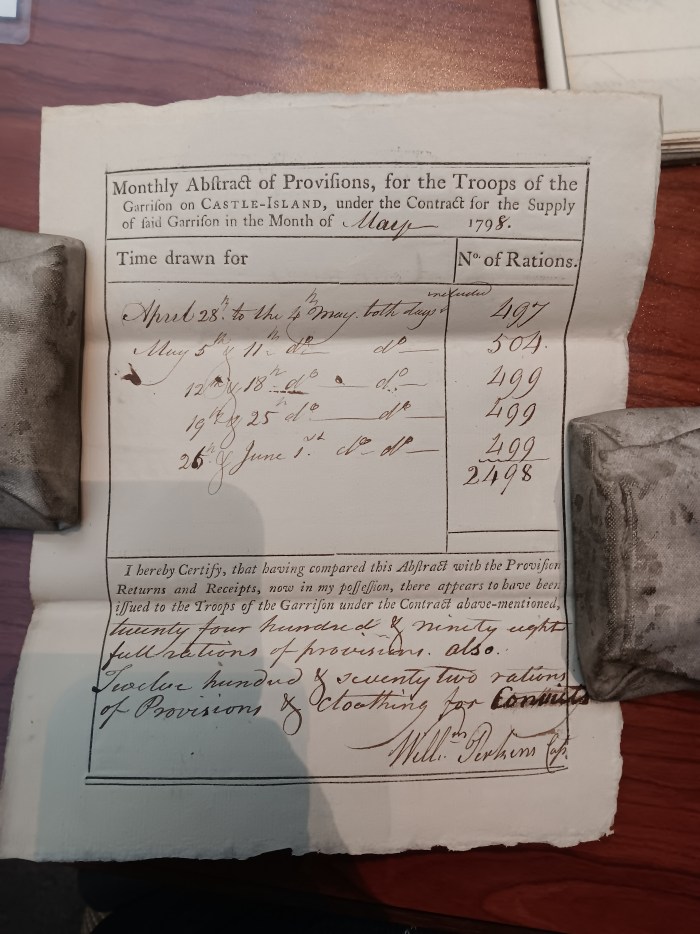 Monthly Abſtract of Proviſions, for the Troops of the
Garriſon on CASTLE-ISLAND, under the Contract for the Supply
of ſaid Garriſon in the Month of May 1798.
Time drawn for No. of Rations.
April 28th to the 4th May. both days included 497
May 5th & 11th do do 504.
12th & 18th do do 499
19th & 25th do do 499
26th & June 1st do do 499
2498
I hereby Certify, that having compared this Abſtract with the Proviſion
Returns and Receipts, now in my poſſeſſion, there appears to have been
iſſued to the Troops of the Garriſon under the Contract above-mentioned,
twenty four hundred & ninety eight
full rations of provisions. also.
Twelve hundred & seventy two rations
of Provisions & Cloathing for Convicts
Willm Perkins Capt.